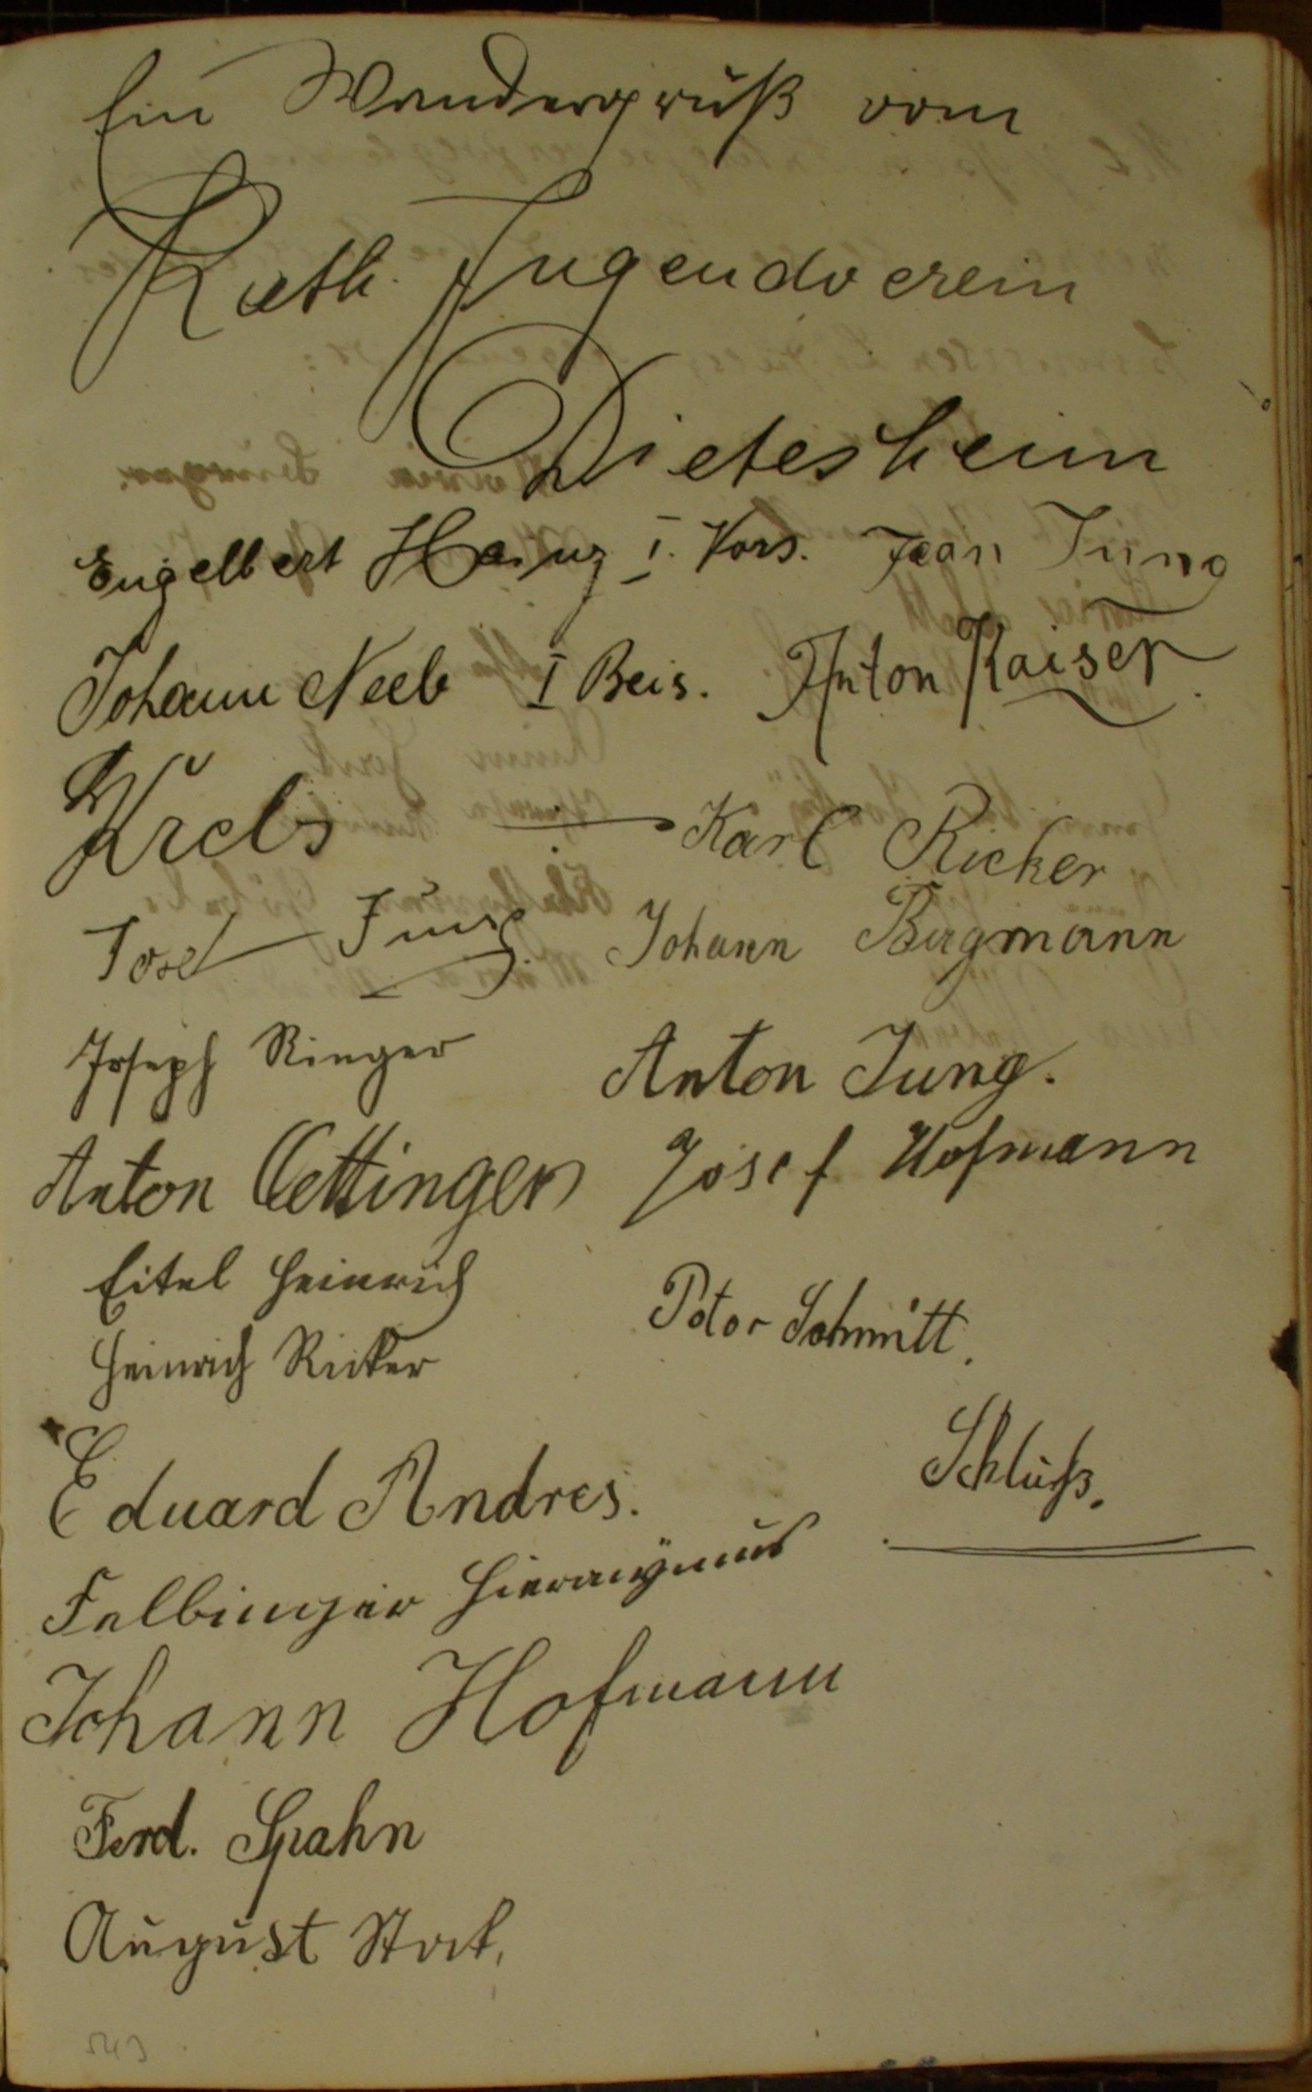 Ein Wandergruß vom
Kath. Jugendverein
Dietesheim
Engelbert Heinz I. Vors. Jean Jung
Johann Neeb I Beis. Anton Kaiser
Krebs Karl Ricker
Josef Jung Johann Bergmann
Joseph Ringer Anton Jung.
Anton Oettinger Josef Hofmann
Eitel Heinrich Peter Schmitt.
Heinrich Ricker
Eduard Andres. Schluß.
Felbinger Hieronÿmus
Johann Hofmann
Ferd. Spahn
August